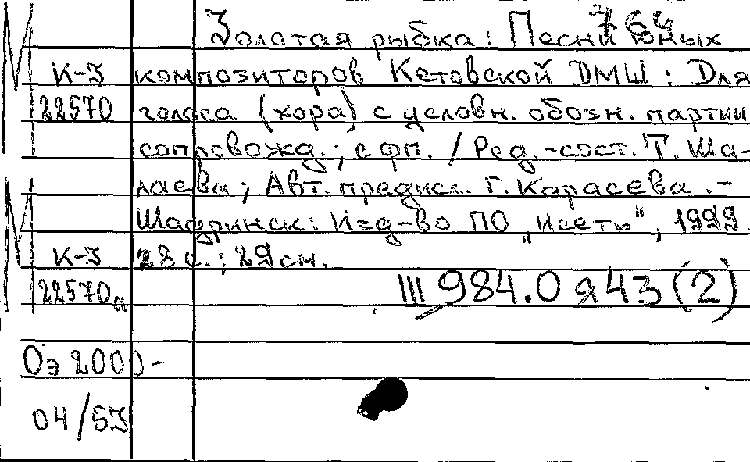 764
Золотая рыбка: Песни юных
М К-3 композиторов Кетовской ДМШ: Для
22570 голоса (хора) с условн. обозн. партии
сопровожд.; с фп. / Ред.-сост. Т. Ша-
лаева; Авт. предисл. Г. Карасева.-
М Шадринск: Изд-во ПО „Исеть", 1999
К-3 28 с.; 29 см.
22570а III 984.0 я43 (2)
Оэ 2000-
04/53